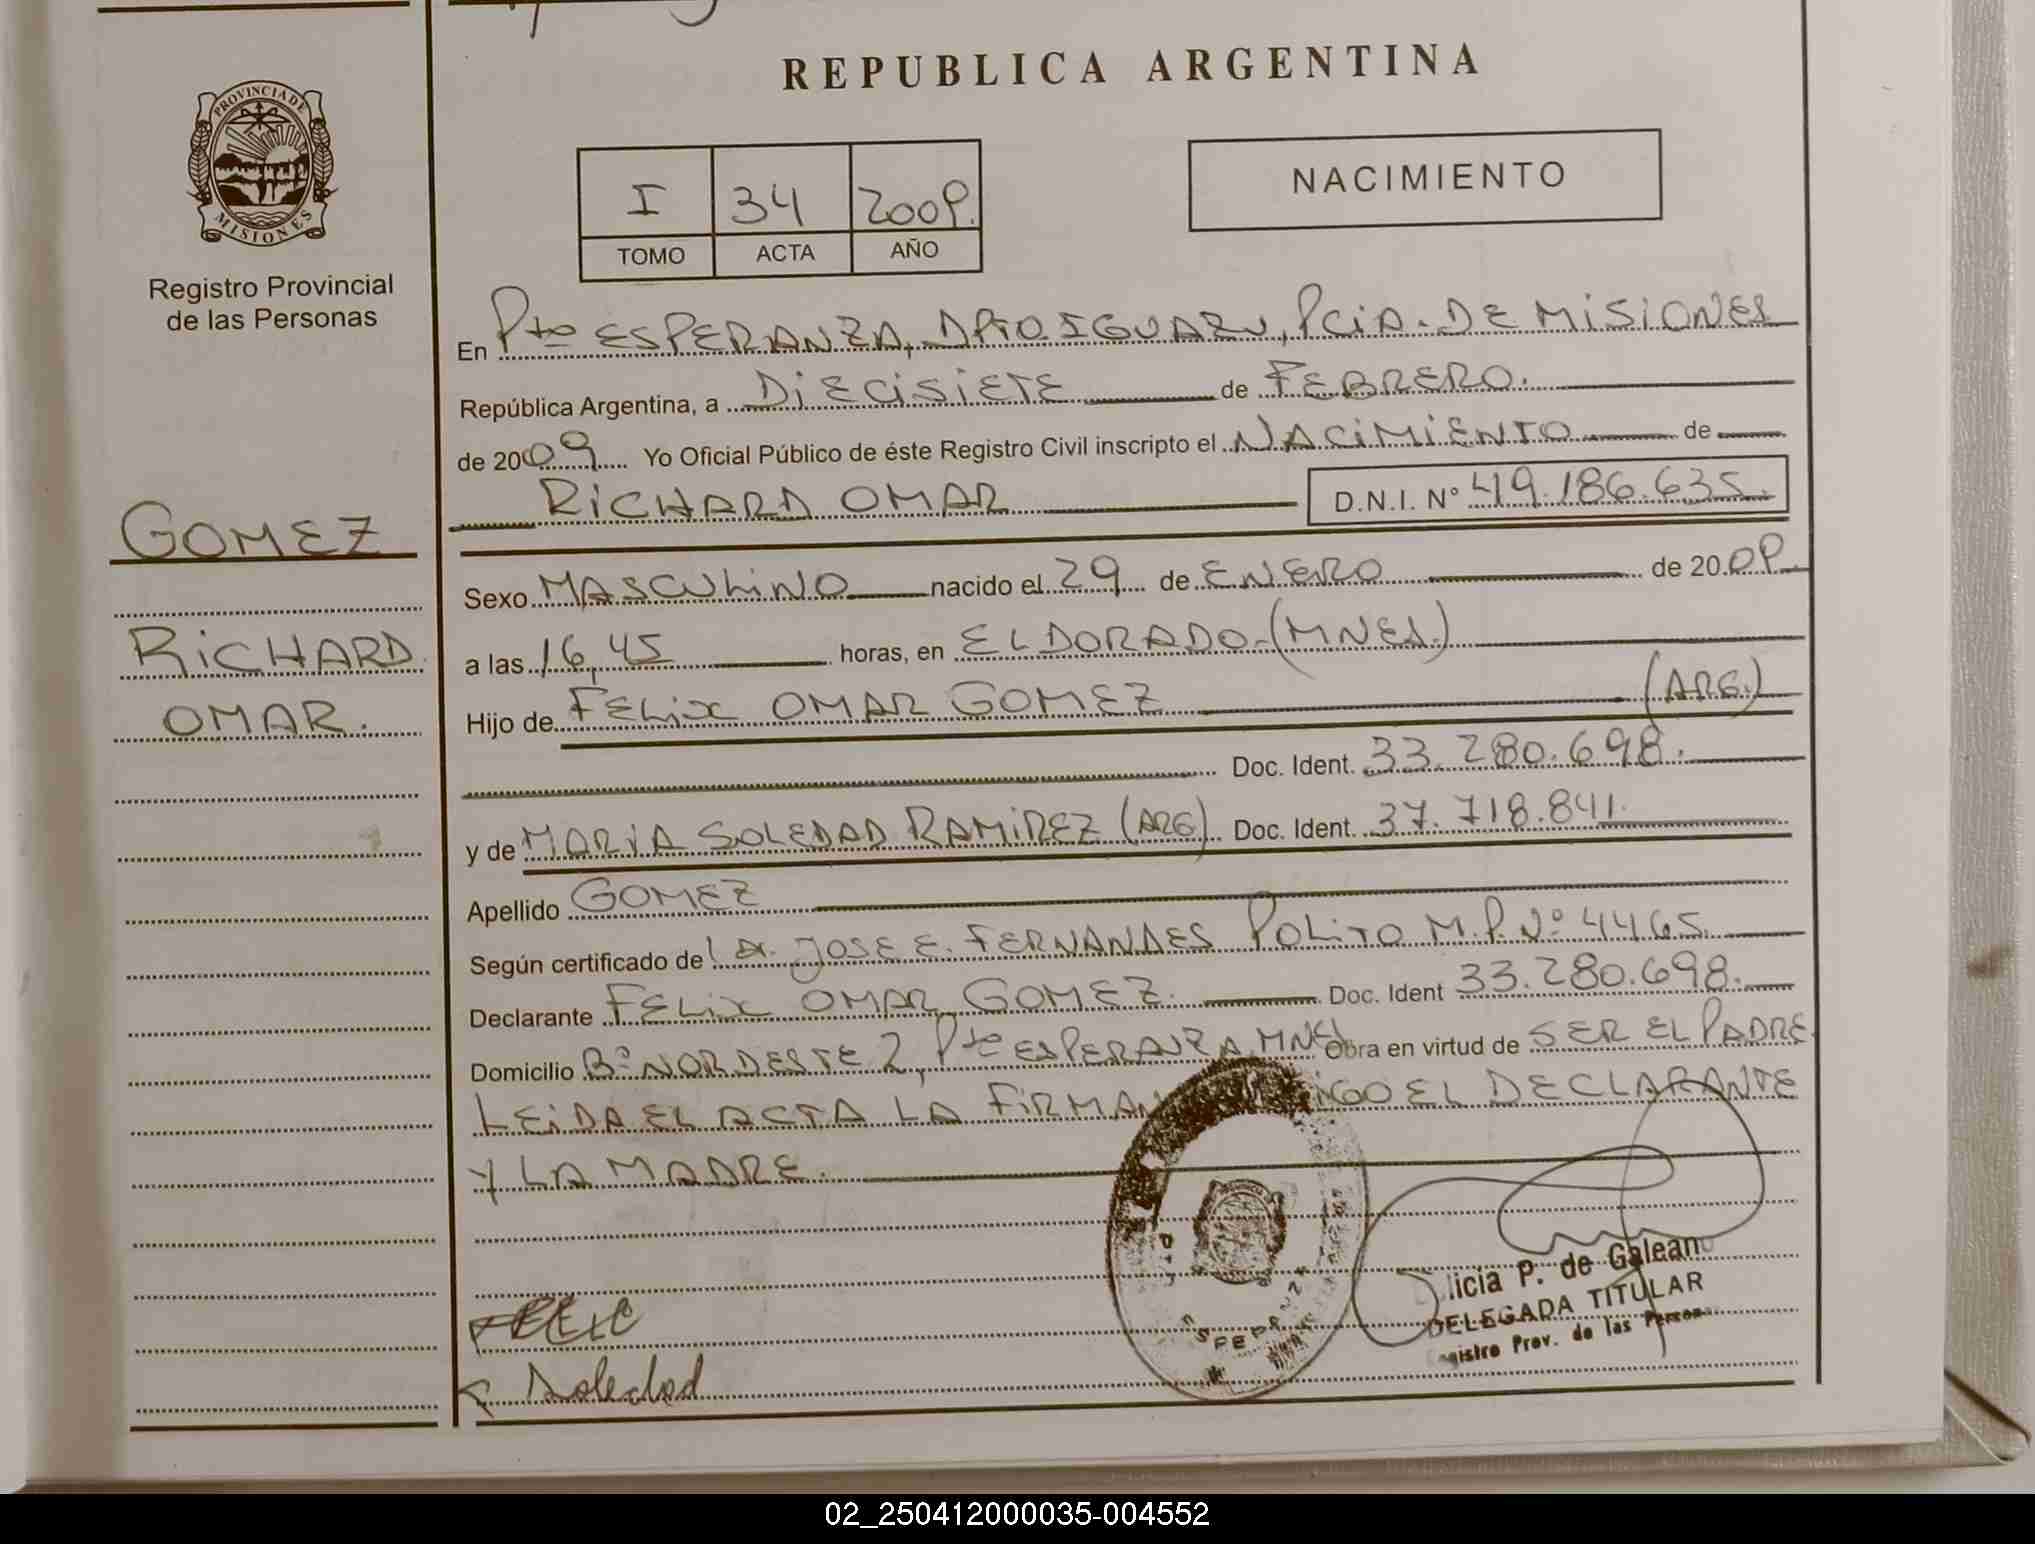 REPUBLICA ARGENTINA
PROVINCIA DE
MISIONES
Registro Provincial
de las Personas
I 34 2009.
TOMO ACTA AÑO
NACIMIENTO
En Pto ESPERANZA, DPTO. IGUAZU, PCIA. DE MISIONES
República Argentina, a DIECISIETE de FEBRERO.
de 2009 Yo Oficial Público de éste Registro Civil inscripto el NACIMIENTO de
RICHARD OMAR D.N.I. N° 49.186.635.
GOMEZ
RICHARD
OMAR.
Sexo MASCULINO nacido el 29 de ENERO de 2009
a las 16,45 horas, en ELDORADO-(MNES.)
Hijo de FELIX OMAR GOMEZ (ARG.)
Doc. Ident. 33.280.698.
y de MARIA SOLEDAD RAMIREZ (ARG) Doc. Ident. 37.718.841.
Apellido GOMEZ
Según certificado de Dr. JOSE E. FERNANDES POLITO M.P. N° 4465.
Declarante FELIX OMAR GOMEZ. Doc. Ident 33.280.698.
Domicilio B° NORDESTE 2, Pto ESPERANZA, MNES Obra en virtud de SER EL PADRE.
LEIDA EL ACTA LA FIRMAN EL DECLARANTE
Y LA MADRE.
licia P. de Galeano
DELEGADA TITULAR
gistro Prov. de las Person
FELIX
Soledad
02_250412000035-004552